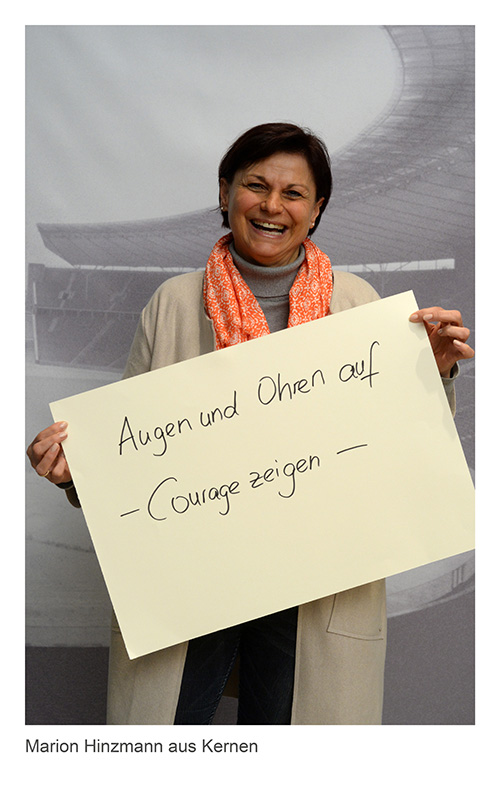 Augen und Ohren auf
- Courage zeigen -
Marion Hinzmann aus Kernen